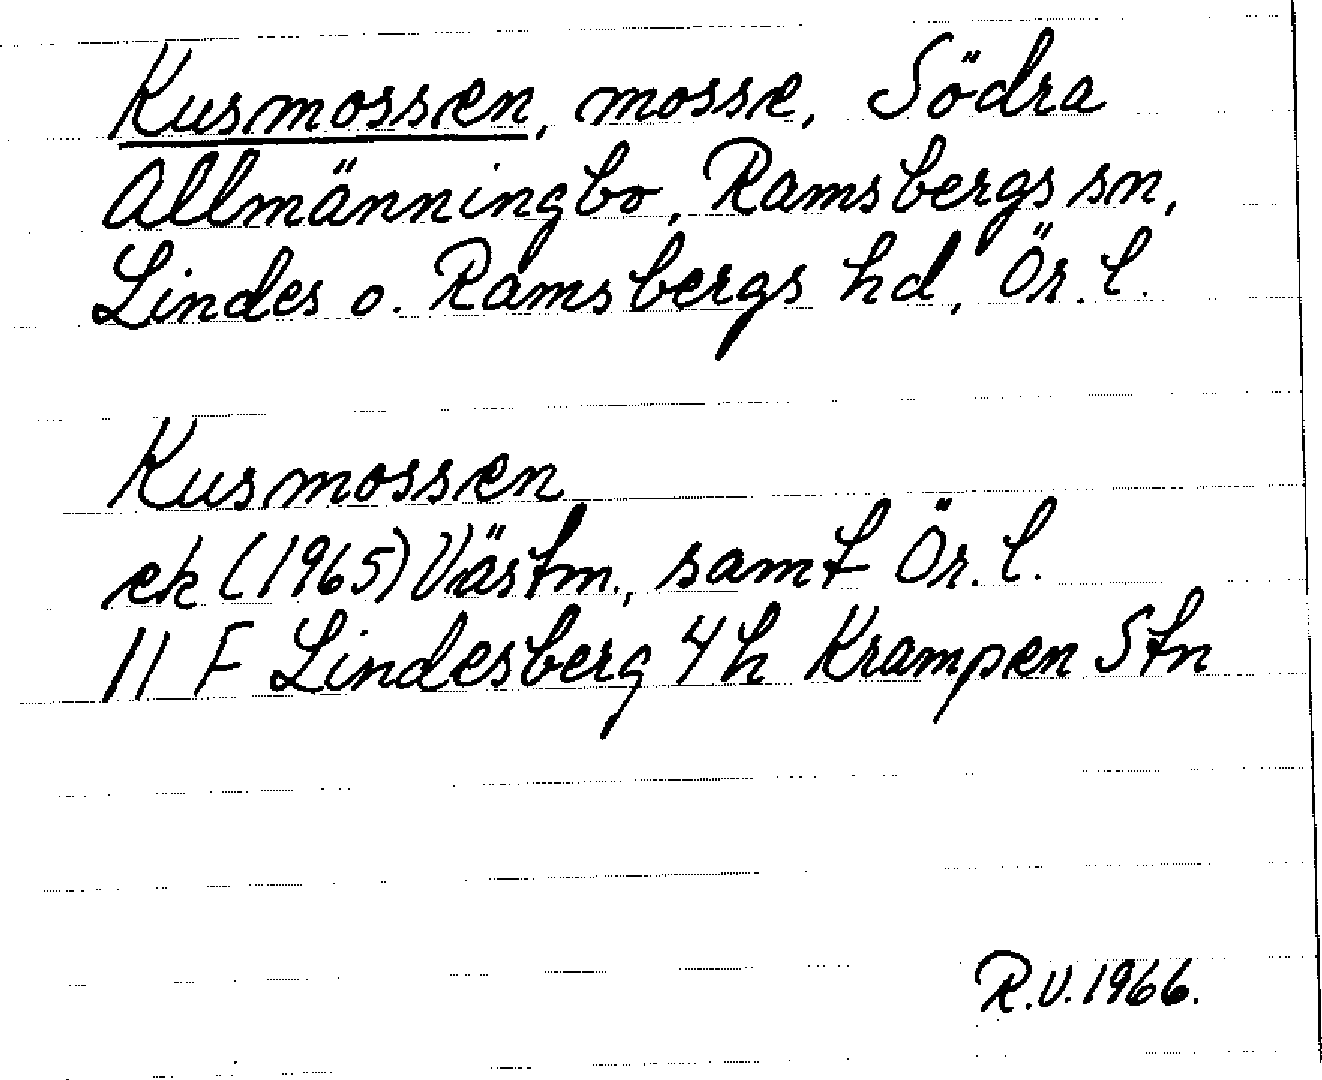 Kusmossen, mosse, Södra
Allmänningbo, Ramsbergs sn,
Lindes o. Ramsbergs hd, Ör. l.
Kusmossen
ek (1965) Västm., samt Ör. l.
11 F Lindesberg 4h Krampen Stn
R.V. 1966.